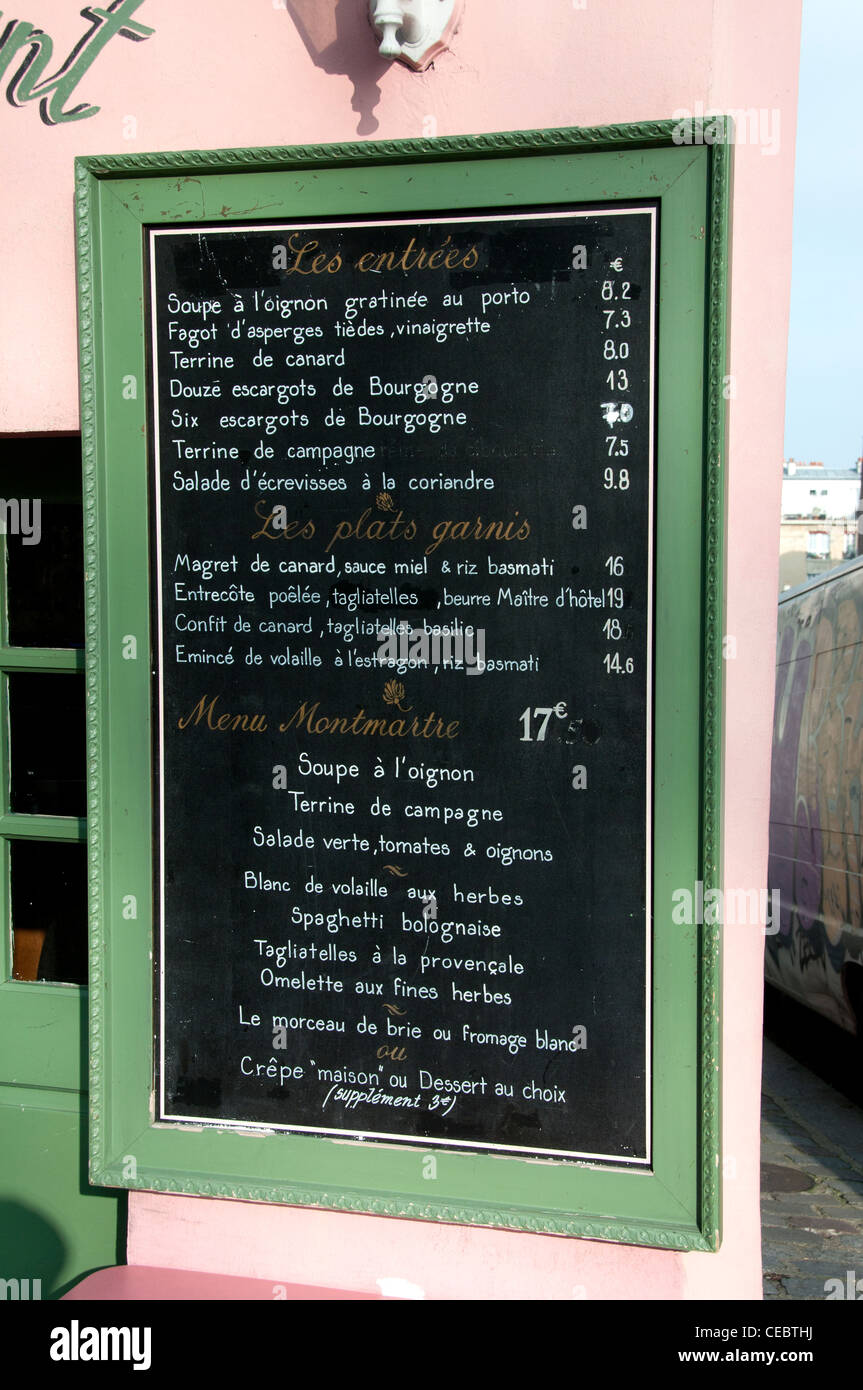 nt
Les entrées
€
Soupe à l'oignon gratinée au porto 8.2
Fagot d'asperges tièdes, vinaigrette 7.3
Terrine de canard 8.0
Douze escargots de Bourgogne 13
Six escargots de Bourgogne
Terrine de campagne 7.5
Salade d'écrevisses à la coriandre 9.8
Les plats garnis
Magret de canard, sauce miel & riz basmati 16
Entrecôte poêlée, tagliatelles, beurre Maître d'hôtel 19
Confit de canard, tagliatelles basilic 18
Emincé de volaille à l'estragon, riz basmati 14.6
Menu Montmartre 17€
Soupe à l'oignon
Terrine de campagne
Salade verte, tomates & oignons
Blanc de volaille aux herbes
Spaghetti bolognaise
Tagliatelles à la provençale
Omelette aux fines herbes
Le morceau de brie ou fromage blanc
ou
Crêpe "maison" ou Dessert au choix
(supplément 3€)
alamy
Image ID: CEBTHJ
www.alamy.com